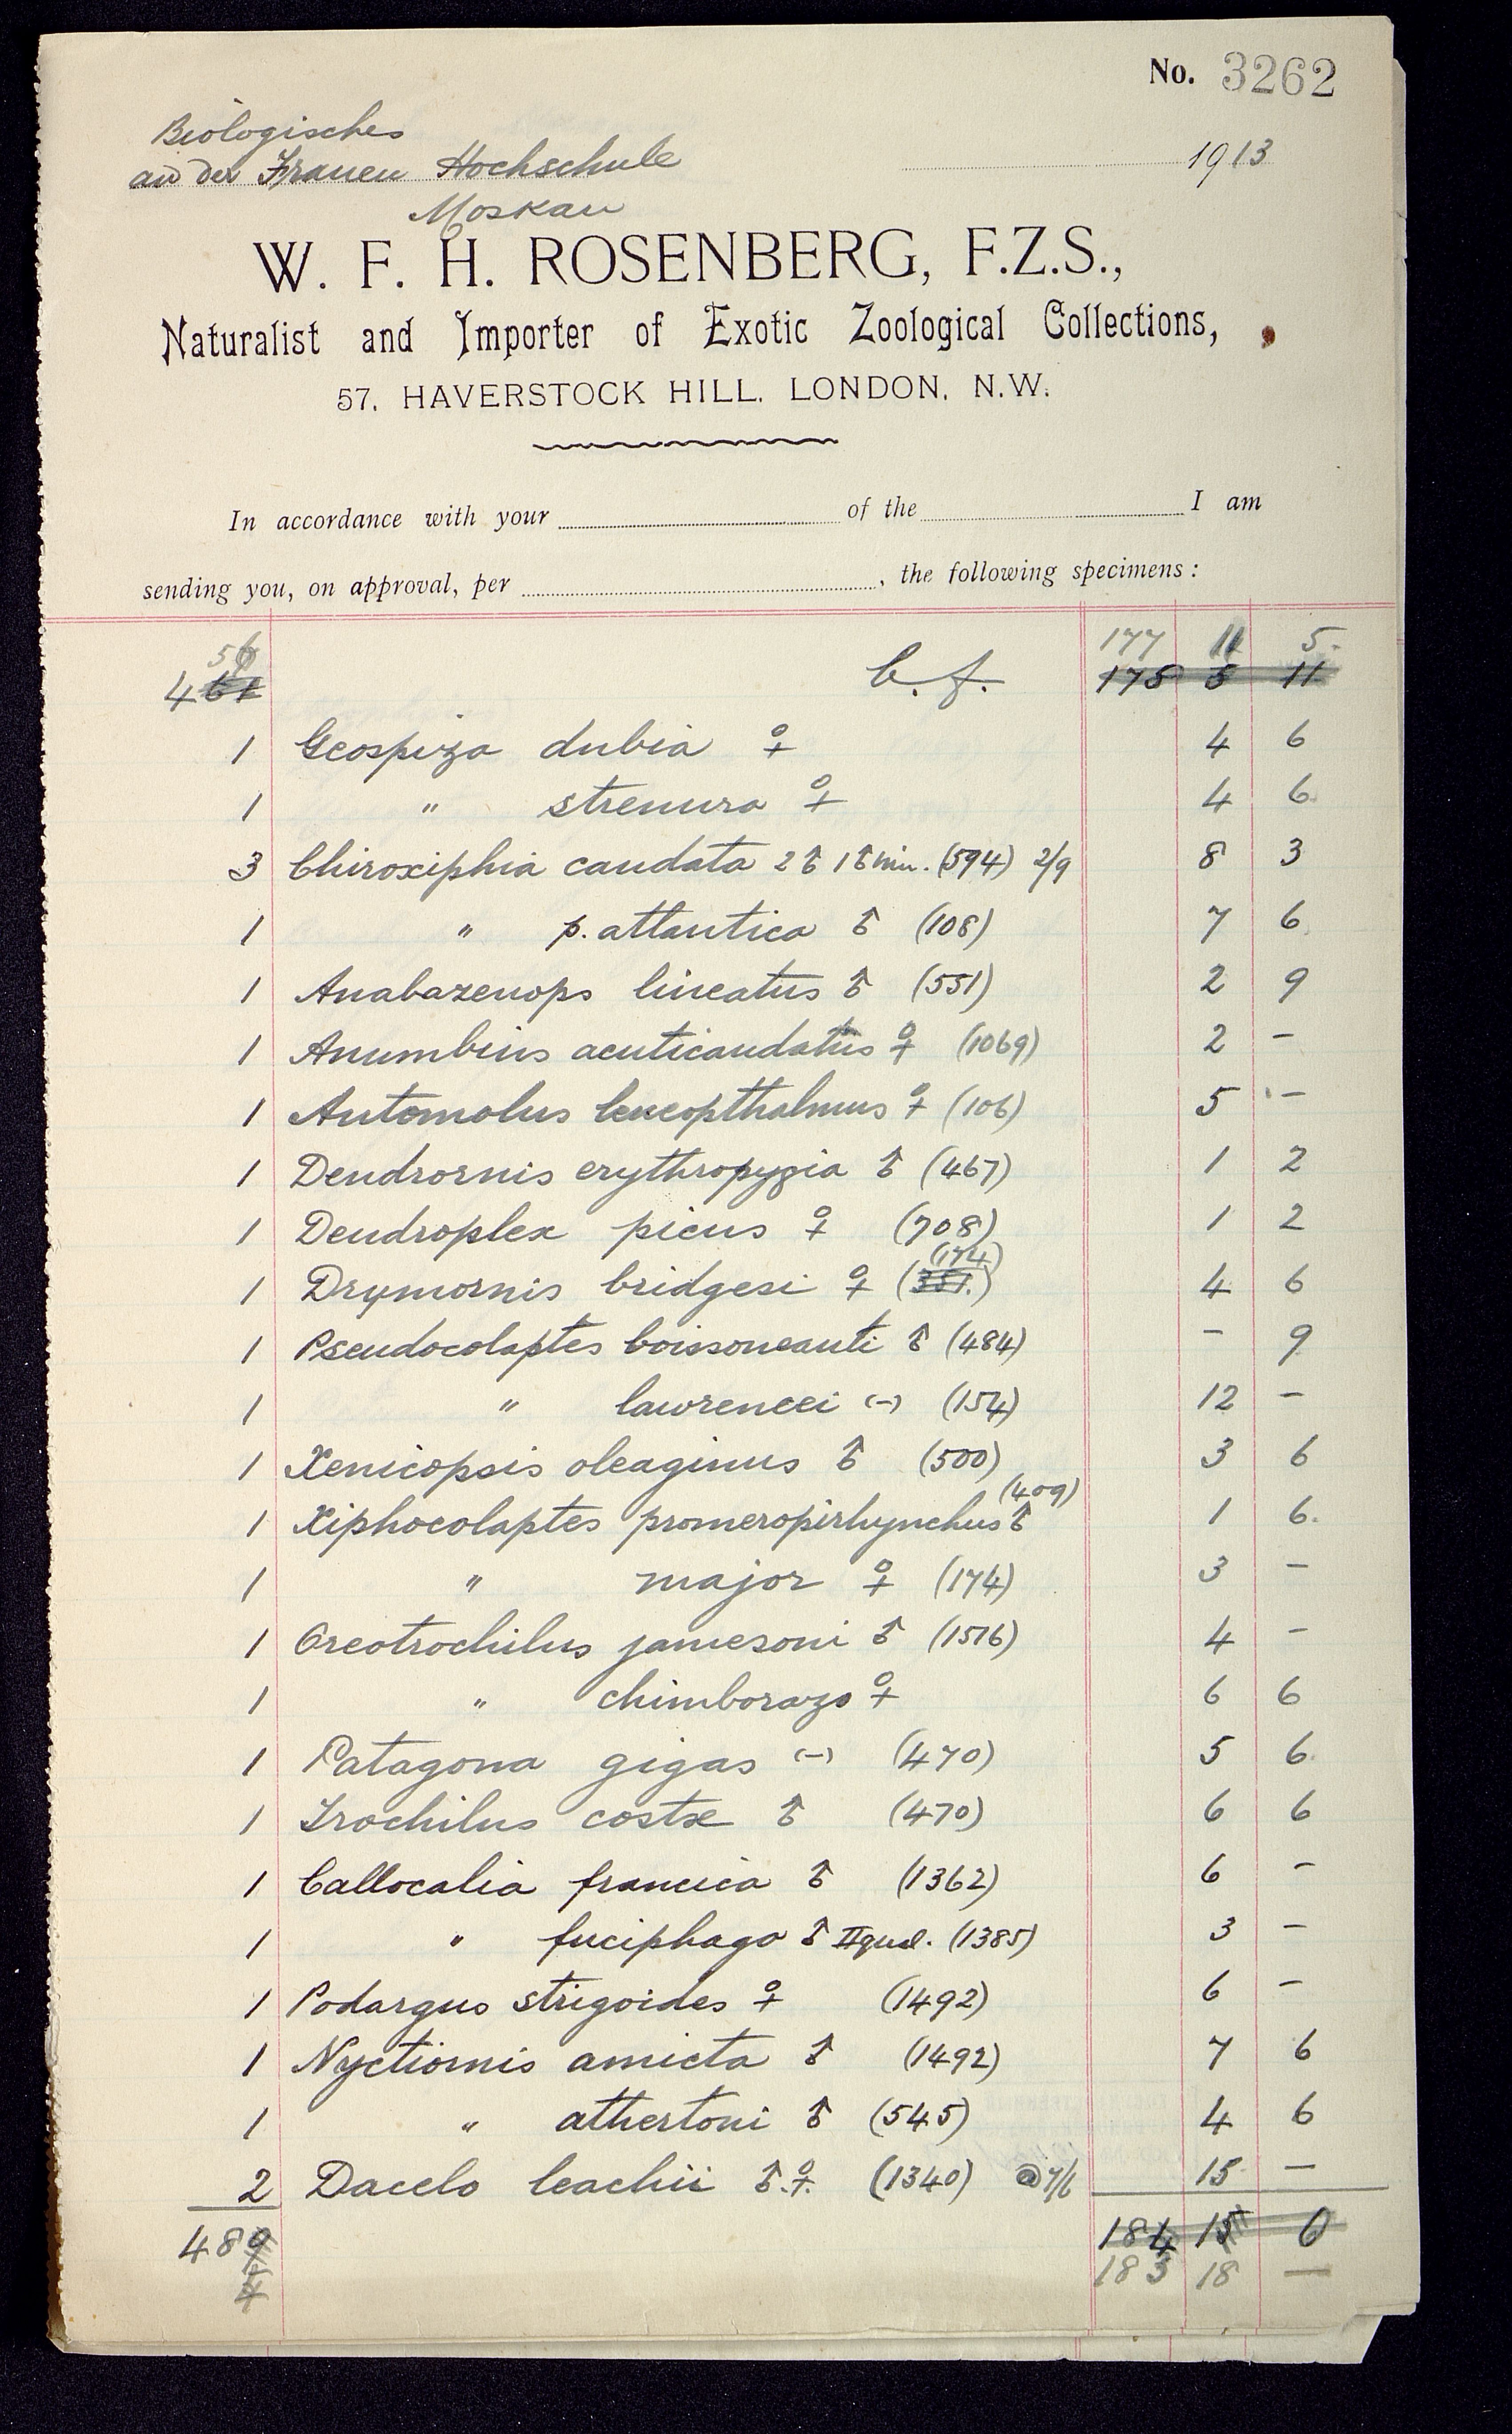 No. 3262
Biologisches
an der Frauen Hochschule
1913
Moskau
W. F. H. ROSENBERG, F.Z.S.,
Naturalist and Importer of Exotic Zoological Collections,
57, HAVERSTOCK HILL, LONDON, N.W.
In accordance with your of the I am
sending you, on approval, per , the following specimens:
56 177 11 5.
461 b.f. 175 5 11
1 Geospiza dubia ♀ 4 6
1 " strenura ♀ 4 6
3 Chiroxiphia caudata 2♂ 1♂ im. (594) 2/9 8 3
1 " p. atlantica ♂ (108) 7 6
1 Anabazenops lineatus ♂ (551) 2 9
1 Anumbius acuticaudatus ♀ (1069) 2 -
1 Automolus leucopthalmus ♀ (106) 5 -
1 Dendrornis erythropygia ♂ (467) 1 2
1 Dendroplex picus ♀ (708) 1 2
(174)
1 Drymornis bridgesi ♀ (351.) 4 6
1 Pseudocolaptes boissoneauti ♂ (484) - 9
1 " lawrencei (-) (154) 12 -
1 Xenicopsis oleaginus ♂ (500) 3 6
(409)
1 Xiphocolaptes promeropirhynchus ♂ 1 6.
1 " major ♀ (174) 3 -
1 Oreotrochilus jamesoni ♂ (1516) 4 -
1 " chimborazo ♀ 6 6
1 Patagona gigas (-) (470) 5 6
1 Trochilus costæ ♂ (470) 6 6
1 Callocalia francica ♂ (1362) 6 -
1 " fuciphaga ♂ II qual. (1385) 3 -
1 Podargus strigoides ♀ (1492) 6 -
1 Nyctiornis amicta ♂ (1492) 7 6
1 " athertoni ♂ (545) 4 6
2 Dacelo leachii ♂.♀. (1340) @ 7/6 15 -
489 184 15 0
4 183 18 —